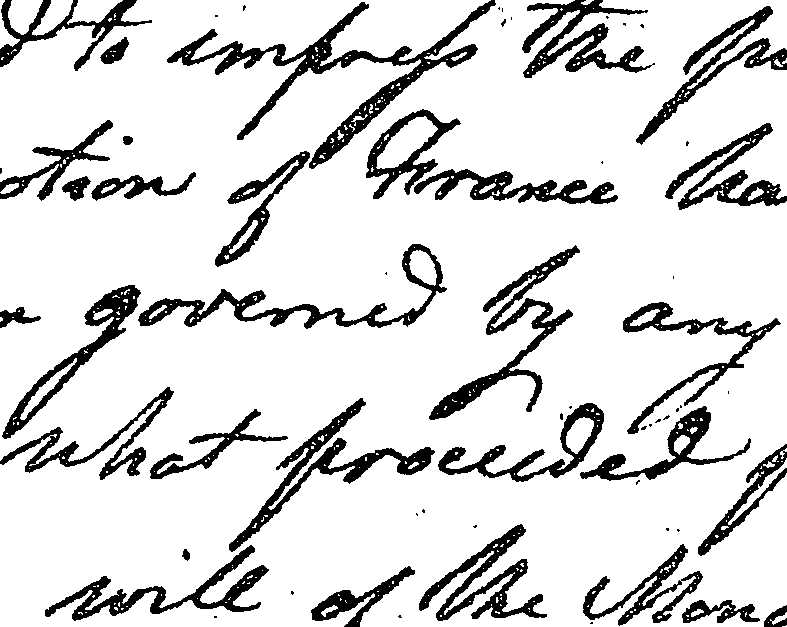 to impress the pe
otion of France ha
n governed by any
what proceeded f
will of the Mona